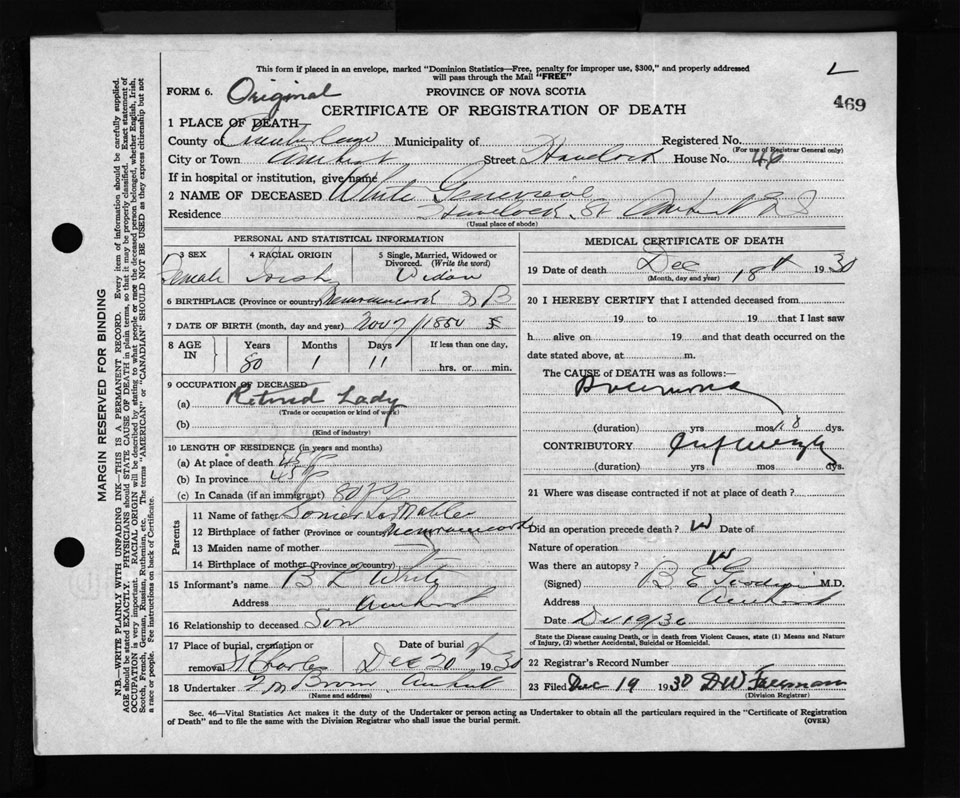 This form if placed in an envelope, marked "Dominion Statistics—Free, penalty for improper use, $300," and properly addressed
will pass through the Mail "FREE"
FORM 6. Original PROVINCE OF NOVA SCOTIA
469
CERTIFICATE OF REGISTRATION OF DEATH
1 PLACE OF DEATH—
County of Cumberland Municipality of Registered No.
(For use of Registrar General only)
City or Town Amherst Street Havelock House No. 46
If in hospital or institution, give name
2 NAME OF DECEASED White Genevieve
Residence Havelock St Amherst N S
(Usual place of abode)
PERSONAL AND STATISTICAL INFORMATION
3 SEX 4 RACIAL ORIGIN 5 Single, Married, Widowed or Divorced. (Write the word)
Female Irish Widow
6 BIRTHPLACE (Province or country) Memramcook N B
7 DATE OF BIRTH (month, day and year) Nov 7/1850
8 AGE IN Years Months Days If less than one day,
80 1 11 hrs. or min.
9 OCCUPATION OF DECEASED
(a) Retired Lady
(Trade or occupation or kind of work)
(b)
(Kind of industry)
10 LENGTH OF RESIDENCE (in years and months)
(a) At place of death 45
(b) In province 45
(c) In Canada (if an immigrant) 80
Parents
11 Name of father
12 Birthplace of father (Province or country) Memramcook
13 Maiden name of mother
14 Birthplace of mother (Province or country)
15 Informant's name B L White
Address Amherst
16 Relationship to deceased Son
17 Place of burial, cremation or removal St Charles Date of burial Dec 20 1930
18 Undertaker Brown Amherst
(Name and address)
MEDICAL CERTIFICATE OF DEATH
19 Date of death Dec 18th 1930
(Month, day and year)
20 I HEREBY CERTIFY that I attended deceased from
19 to 19 that I last saw
h alive on 19 and that death occurred on the
date stated above, at m.
The CAUSE of DEATH was as follows:—
Pneumonia
(duration) yrs mos 8 dys.
CONTRIBUTORY
(duration) yrs mos dys.
21 Where was disease contracted if not at place of death?
Did an operation precede death? Date of
Nature of operation
Was there an autopsy?
(Signed) B E Goodwin M.D.
Address Amherst
Date
State the Disease causing Death, or in death from Violent Causes, state (1) Means and Nature of Injury, (2) whether Accidental, Suicidal or Homicidal.
22 Registrar's Record Number
23 Filed Dec 19 1930 D W Freeman
(Division Registrar)
Sec. 46—Vital Statistics Act makes it the duty of the Undertaker or person acting as Undertaker to obtain all the particulars required in the "Certificate of Registration
of Death" and to file the same with the Division Registrar who shall issue the burial permit. (OVER)
MARGIN RESERVED FOR BINDING
N.B.—WRITE PLAINLY WITH UNFADING INK—THIS IS A PERMANENT RECORD. Every item of information should be carefully supplied.
AGE should be stated EXACTLY. PHYSICIANS should STATE CAUSE OF DEATH in plain terms, so that it may be properly classified. Exact statement of
OCCUPATION is very important. RACIAL ORIGIN will be described by stating to what people or race the deceased person belonged, whether English, Irish,
Scotch, French, German, Russian, Ruthenian, etc. The terms "AMERICAN" or "CANADIAN" SHOULD NOT BE USED as they express citizenship but not
a race or people. Fee instructions on back of Certificate.